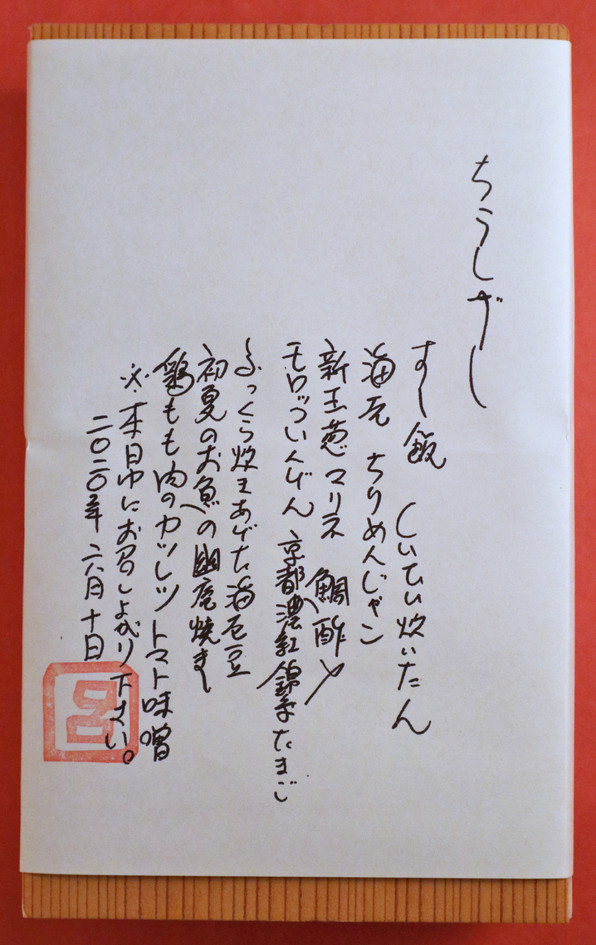 ちらしずし
すし飯 しいたけ炊いたん
海老 ちりめんじゃこ
新玉葱マリネ 鯛酢〆
モロッコいんげん 京都濃紅錦糸たまご
ふっくら炊きあげた海老豆
初夏のお魚の幽庵焼き
鶏もも肉のカツレツ トマト味噌
※本日中にお召し上がり下さい。
二〇二〇年六月十日
呂